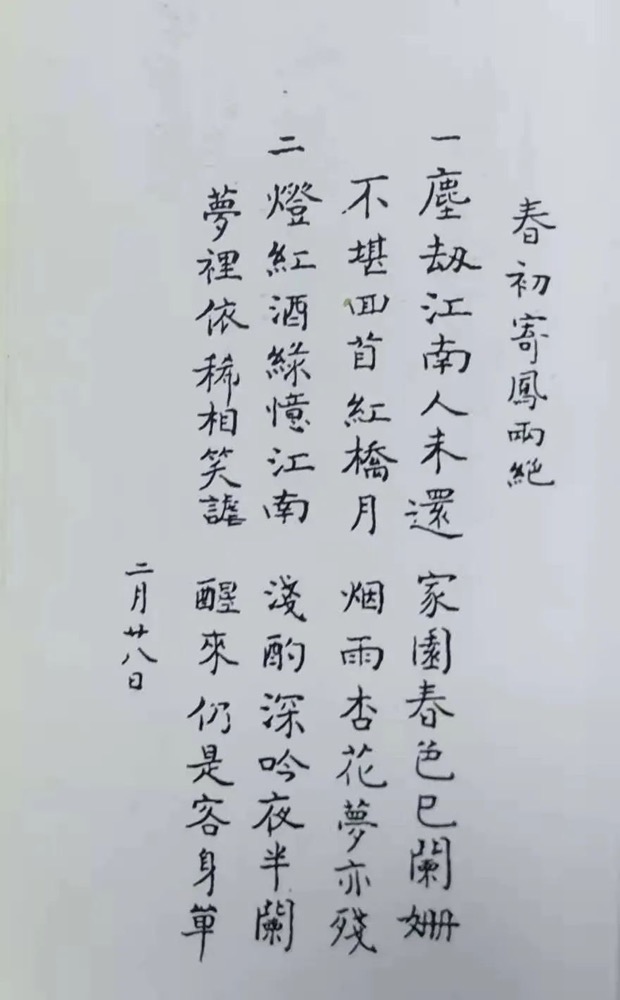 春初寄鳳兩絕
一 塵劫江南人未還 家園春色已闌姍
不堪回首紅橋月 烟雨杏花夢亦殘
二 燈紅酒綠憶江南 淺酌深吟夜半闌
夢裡依稀相笑謔 醒來仍是客身單
二月廿八日